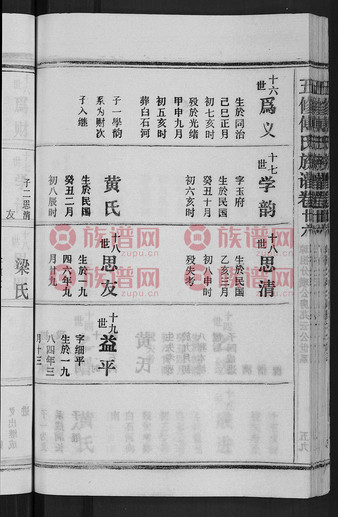 五修傅氏族谱卷廿六
十六世 為义
生於同治
己巳正月
初七亥时
殁於光绪
甲申九月
初五亥时
葬白石河
子一學韵
系为财次
子入继
十七世 学韵
字玉府
生於民国
癸丑十月
初六亥时
黄氏
生於民国
癸丑二月
初八辰时
十八世 思清
生於民国
乙亥三月
初八申时
殁失考
十八世 思友
生於一九
四六年九
月廿九
十九世 益平
字细平
生於一九
八四年三
月十三
子二思清
友
梁氏
五九
族谱网
zupu.cn